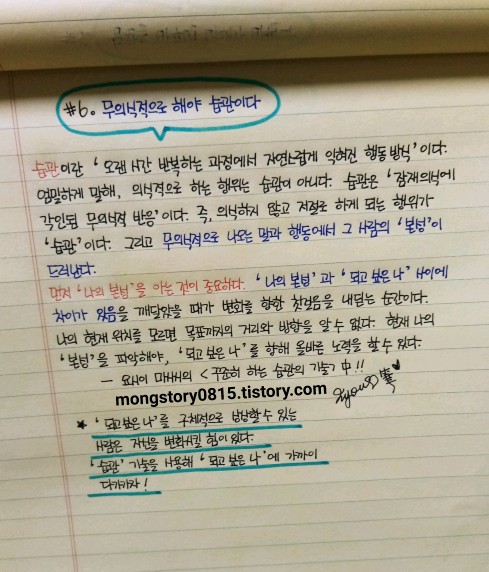 #6. 무의식적으로 해야 습관이다
습관이란 '오랜 시간 반복하는 과정에서 자연스럽게 익혀진 행동 방식'이다.
엄밀하게 말해, 의식적으로 하는 행위는 습관이 아니다. 습관은 '잠재의식에
각인된 무의식적 반응'이다. 즉, 의식하지 않고 저절로 하게 되는 행위가
'습관'이다. 그리고 무의식적으로 나오는 말과 행동에서 그 사람의 '본성'이
드러난다.
먼저 '나의 본성'을 아는 것이 중요하다. '나의 본성'과 '되고 싶은 나' 사이에
차이가 있음을 깨달았을 때가 변화를 향한 첫걸음을 내딛는 순간이다.
나의 현재 위치를 모르면 목표까지의 거리와 방향을 알 수 없다. 현재 나의
'본성'을 파악해야, '되고 싶은 나'를 향해 올바른 노력을 할 수 있다.
- 요시이 마사시의 <꾸준히 하는 습관의 기술> 中!!
mongstory0815.tistory.com
* '되고 싶은 나'를 구체적으로 상상할 수 있는
사람은 자신을 변화시킬 힘이 있다.
'습관' 기술을 사용해 '되고 싶은 나'에 가까이
다가가자!